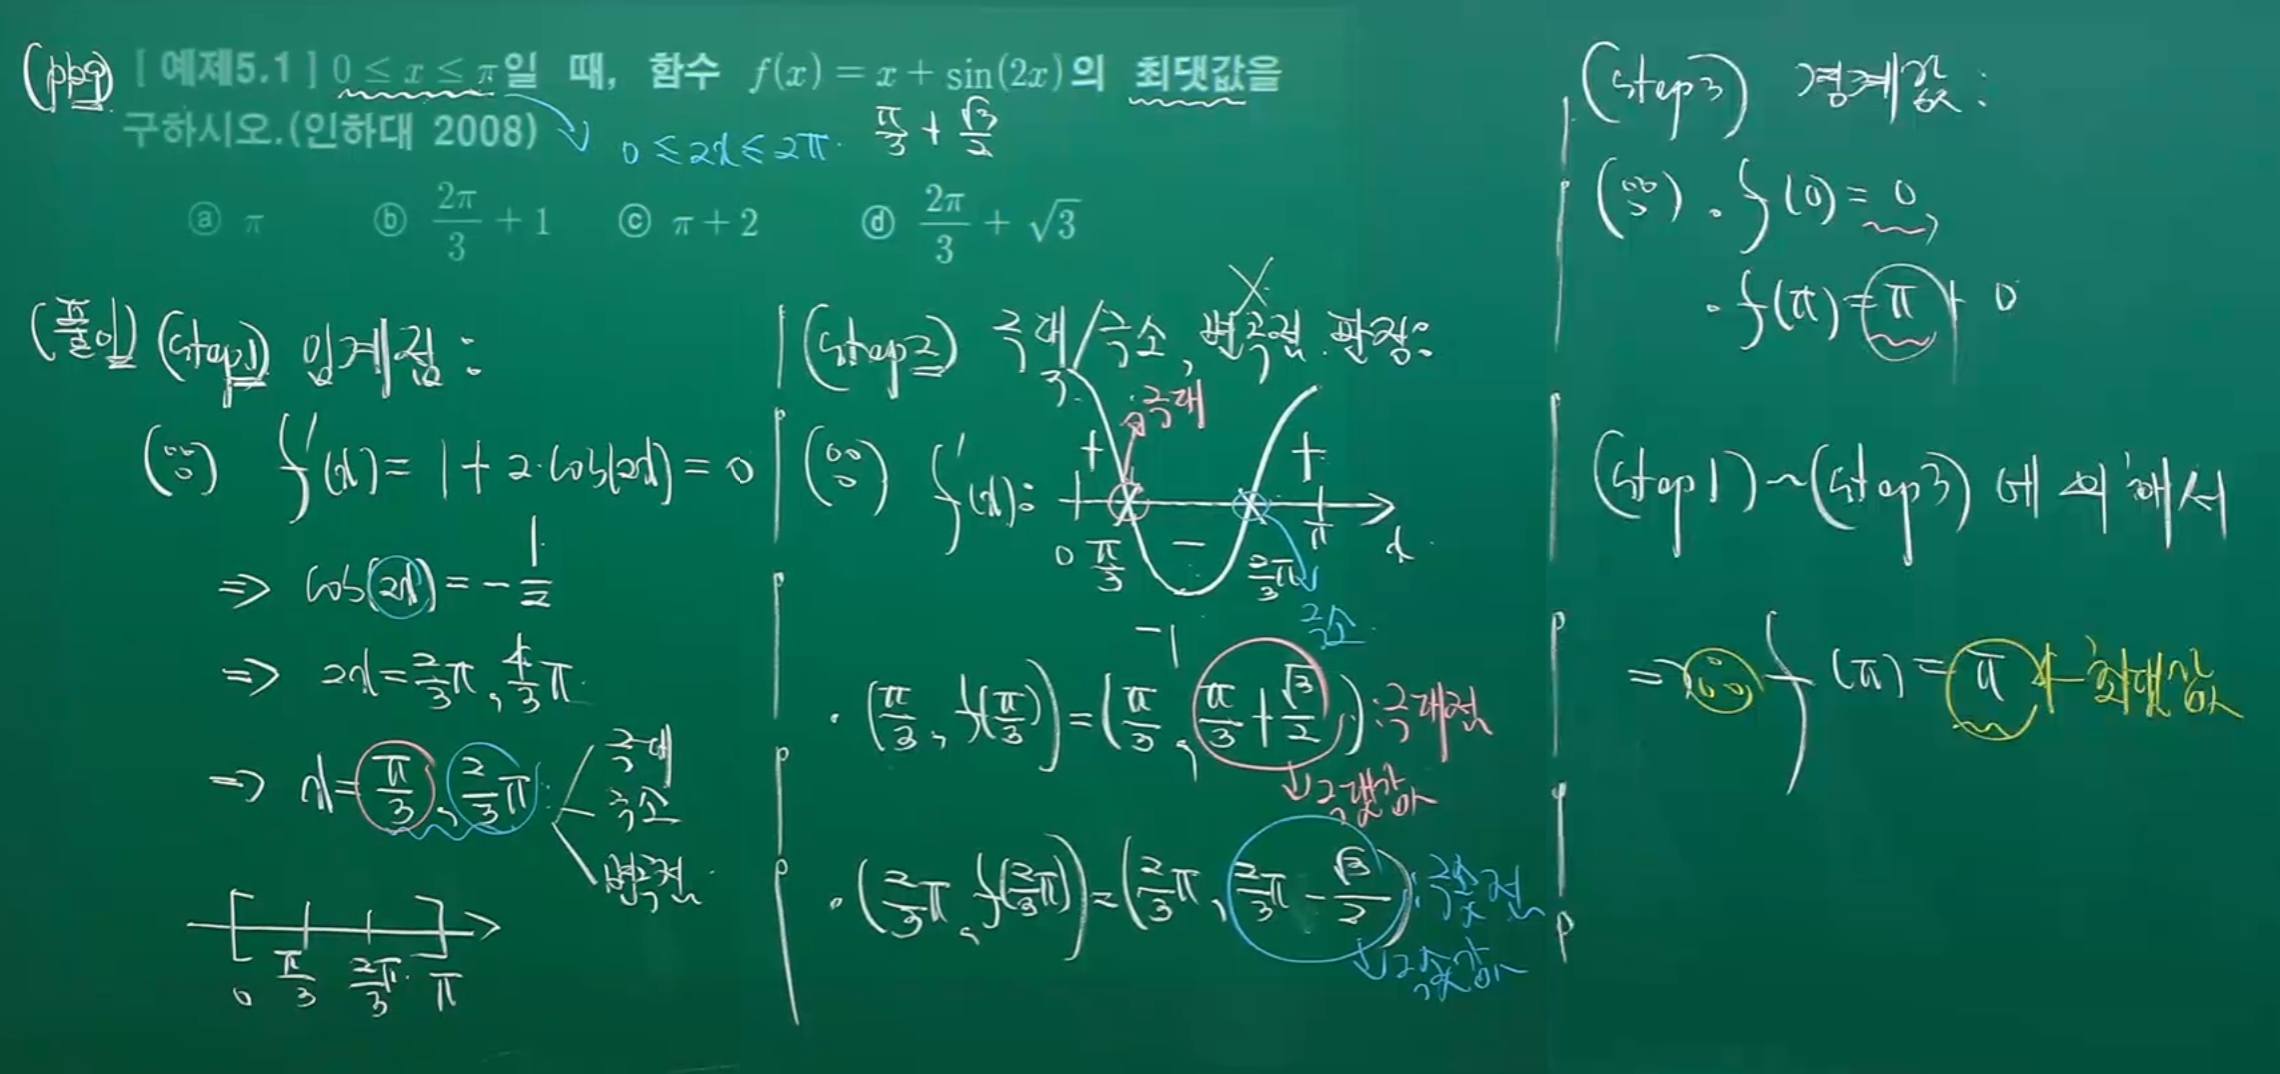 (pp9) [ 예제5.1 ] 0 ≤ x ≤ π일 때, 함수 f(x) = x + sin(2x)의 최댓값을
구하시오.(인하대 2008)
0 ≤ 2x ≤ 2π.
π/3 + √3/2
ⓐ π ⓑ 2π/3 + 1 ⓒ π + 2 ⓓ 2π/3 + √3
(풀이) (step1) 임계점 :
(∵) f'(x) = 1 + 2·cos(2x) = 0
⇒ cos(2x) = -1/2
⇒ 2x = 2/3π, 4/3π.
⇒ x = π/3, 2/3π.
극대
극소
변곡점.
0 π/3 2/3π. π
(step2) 극대/극소, 변곡점. 판정:
X
3
극대
(∵) f'(x):
+ - +
0 π/3 2/3π π x
극소
-1
· (π/3, f(π/3)) = (π/3, π/3 + √3/2) : 극대점
극댓값
· (2/3π, f(2/3π)) = (2/3π, 2/3π - √3/2) : 극소점
극솟값
(step3) 경계값 :
(∵) · f(0) = 0
· f(π) = π + 0
(step1) ~ (step3) 에 의해서
⇒ ∴ f(π) = π 최댓값